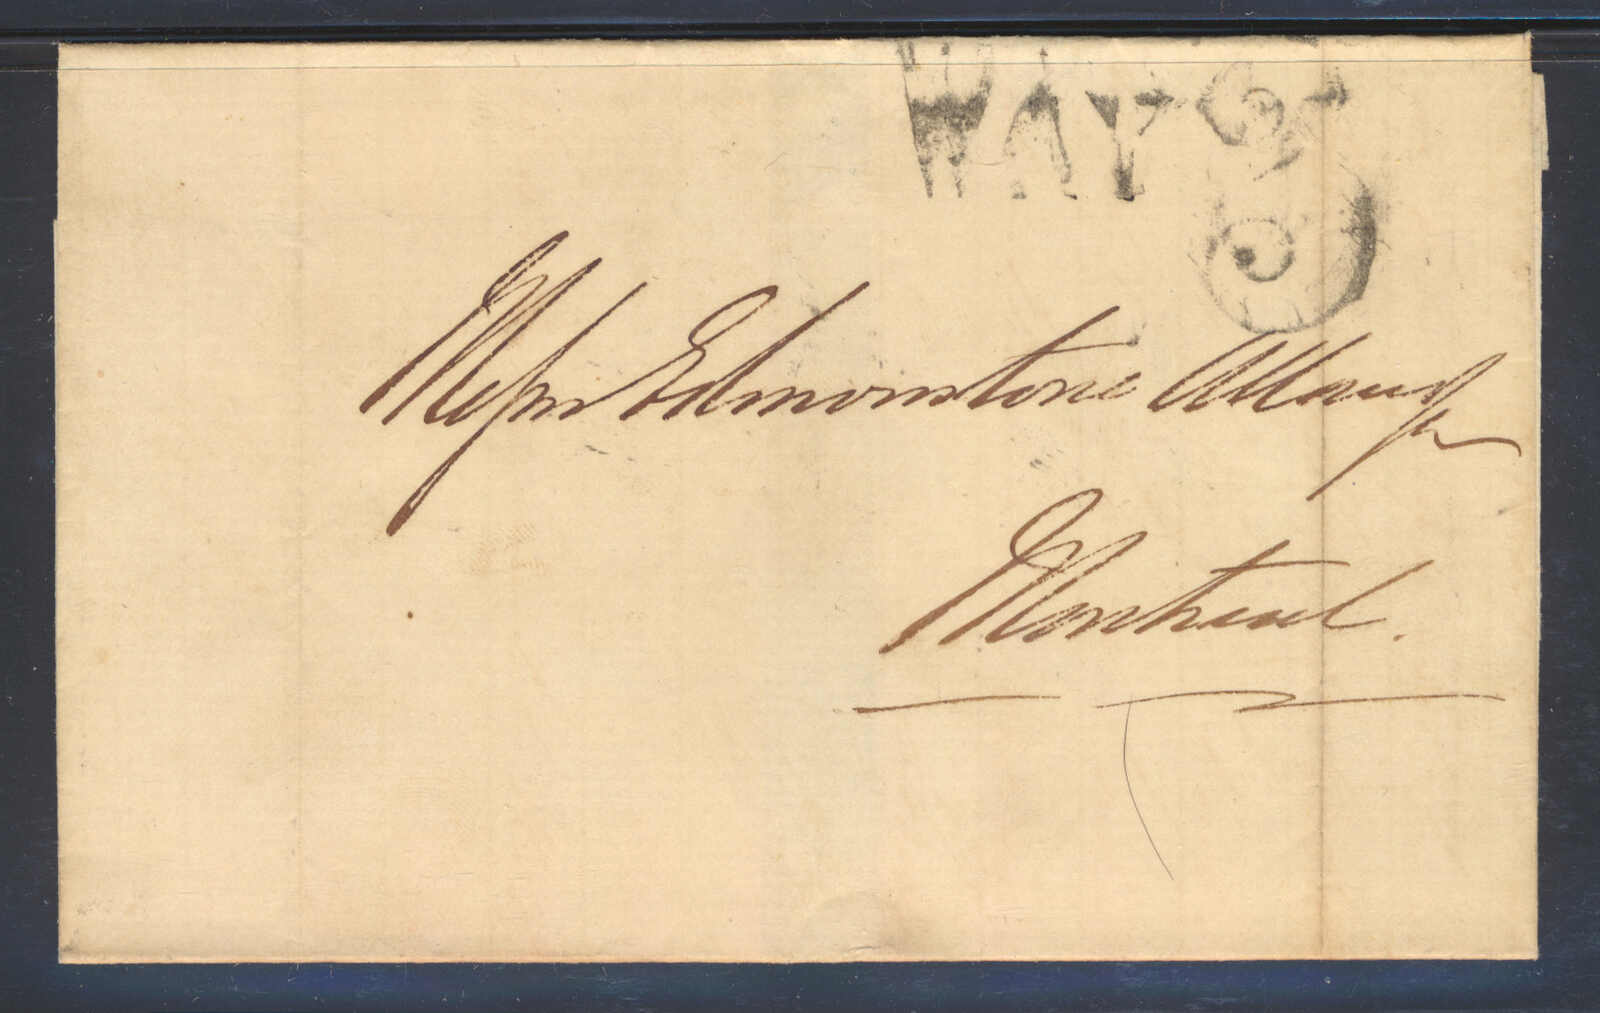 WAY
Messrs Edmonstone Allan & Co
Montreal.